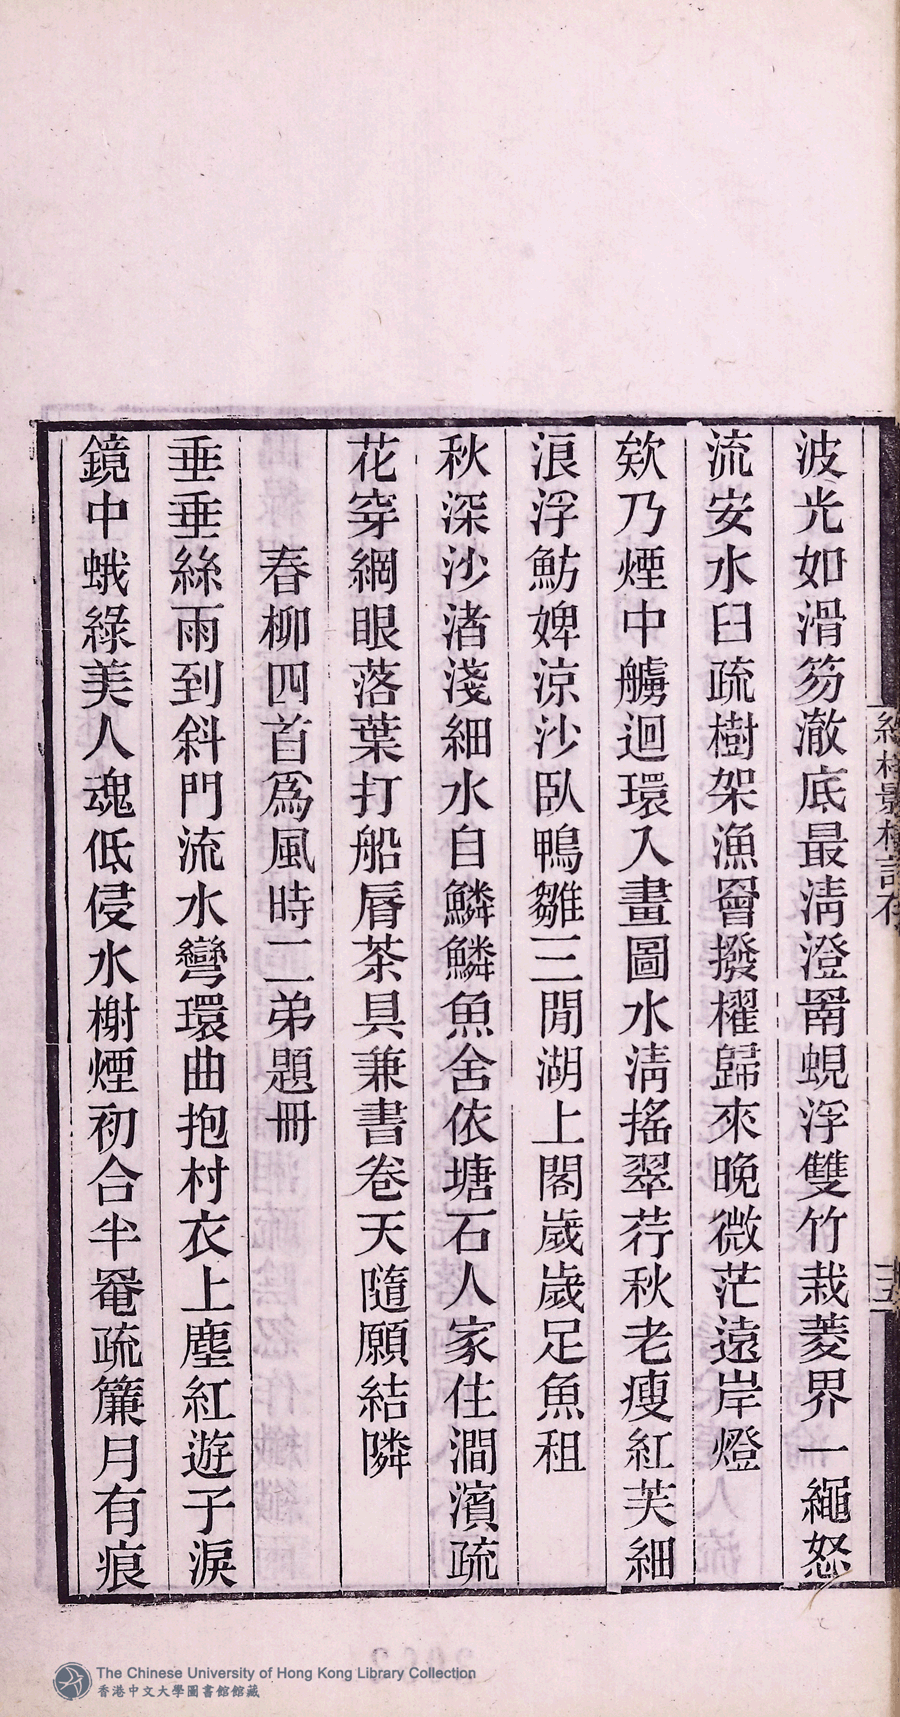 波光如滑笏澈底最淸澄罱蜆浮雙竹栽菱界一繩怒
流安水臼疏樹架漁罾撥櫂歸來晚微茫遠岸燈
欸乃煙中艣迴環入畫圖水淸搖翠荇秋老瘦紅芙細
浪浮魴婢涼沙臥鴨雛三閒湖上閣歲歲足魚租
秋深沙渚淺細水自鱗鱗魚舍依塘石人家住澗濱疏
花穿網眼落葉打船脣茶具兼書卷天隨願結隣
春柳四首爲風時二弟題冊
垂垂絲雨到斜門流水彎環曲抱村衣上塵紅遊子淚
鏡中蛾綠美人魂低侵水榭煙初合半罨疏簾月有痕
The Chinese University of Hong Kong Library Collection
香港中文大學圖書館館藏